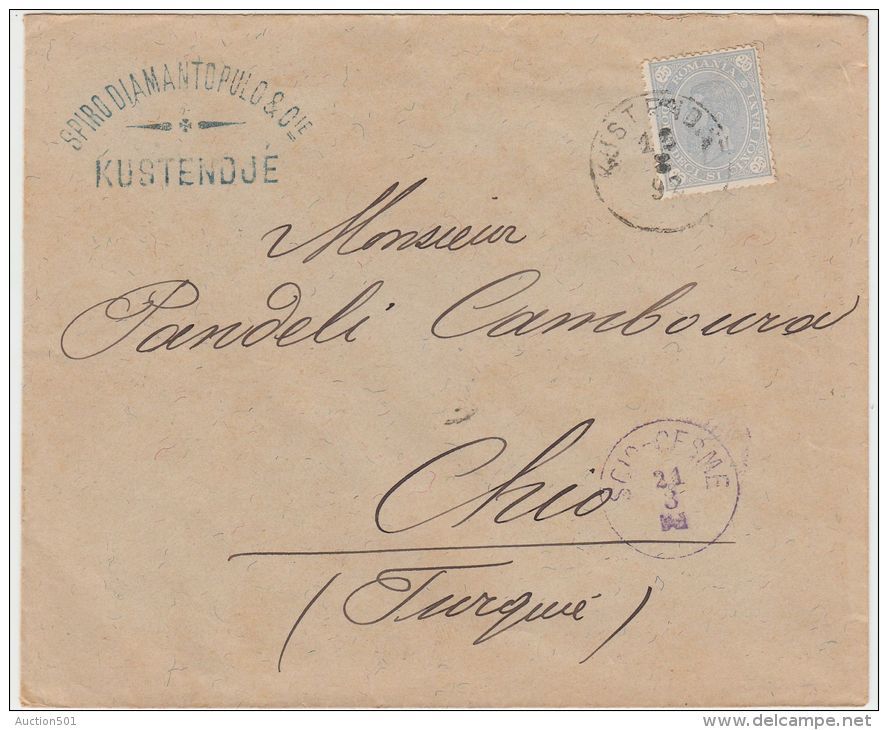 SPIRO DIAMANTOPULO & CIE
KUSTENDJÉ
ROMANIA
25 25
25 25
KUSTENDJE
Monsieur
Pandeli Camboura
Chio
(Turquie)
SCIO-CESME
21
3
Auction501
www.delcampe.net